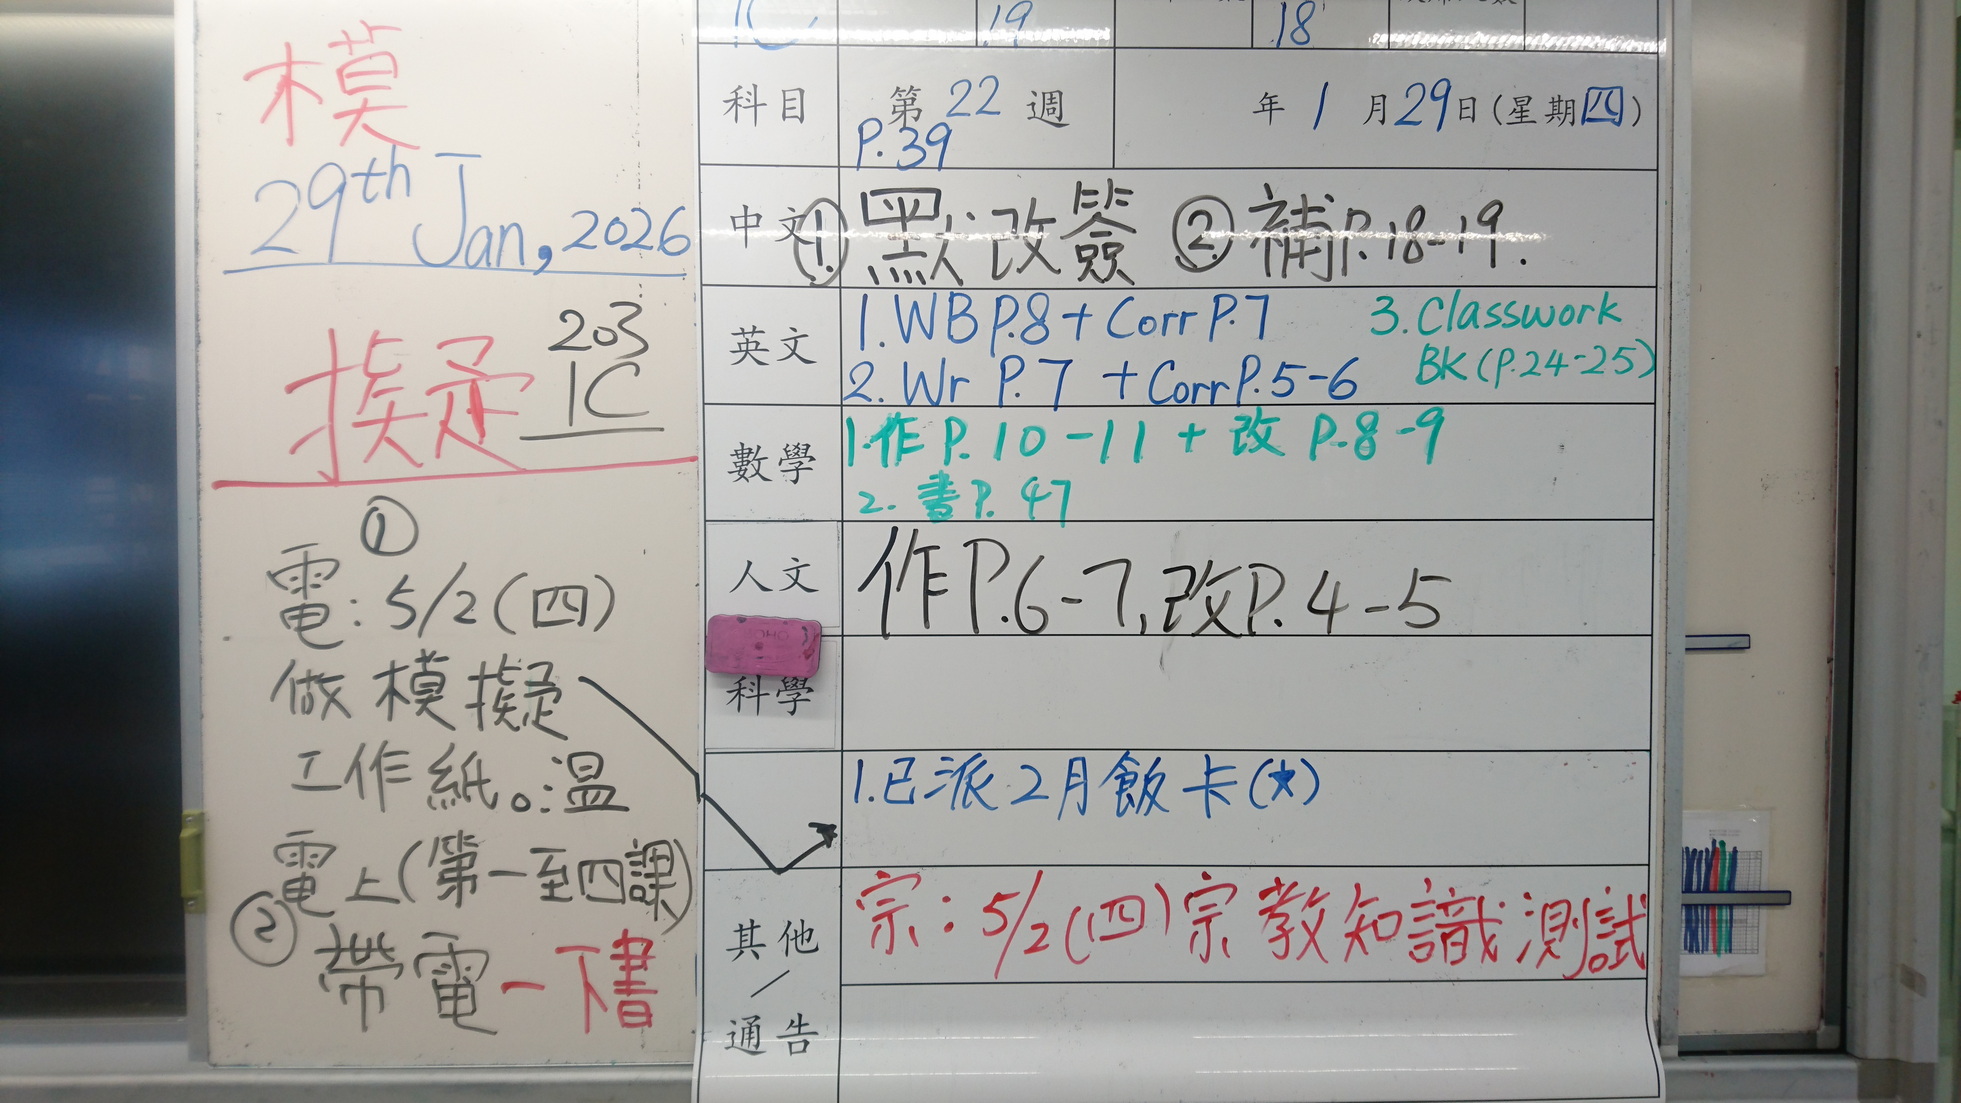 模
29th Jan, 2026
擬
203
1C
①
電：5/2(四)
做模擬
工作紙。:温
電上(第一至四課)
② 帶電一下書
1C 19 18
科目 第 22 週 年 1 月 29 日 (星期四)
P.39
中文 ①默改簽 ②補P.18-19.
英文 1. WB P.8 + Corr P.7 3. Classwork
2. Wr P.7 + Corr P.5-6 BK (P.24-25)
數學 1.作P.10-11 + 改 P.8-9
2. 書P.47
人文 作P.6-7, 改P.4-5
科學
1.已派2月飯卡(★)
其他／通告 宗：5/2(四)宗教知識測試